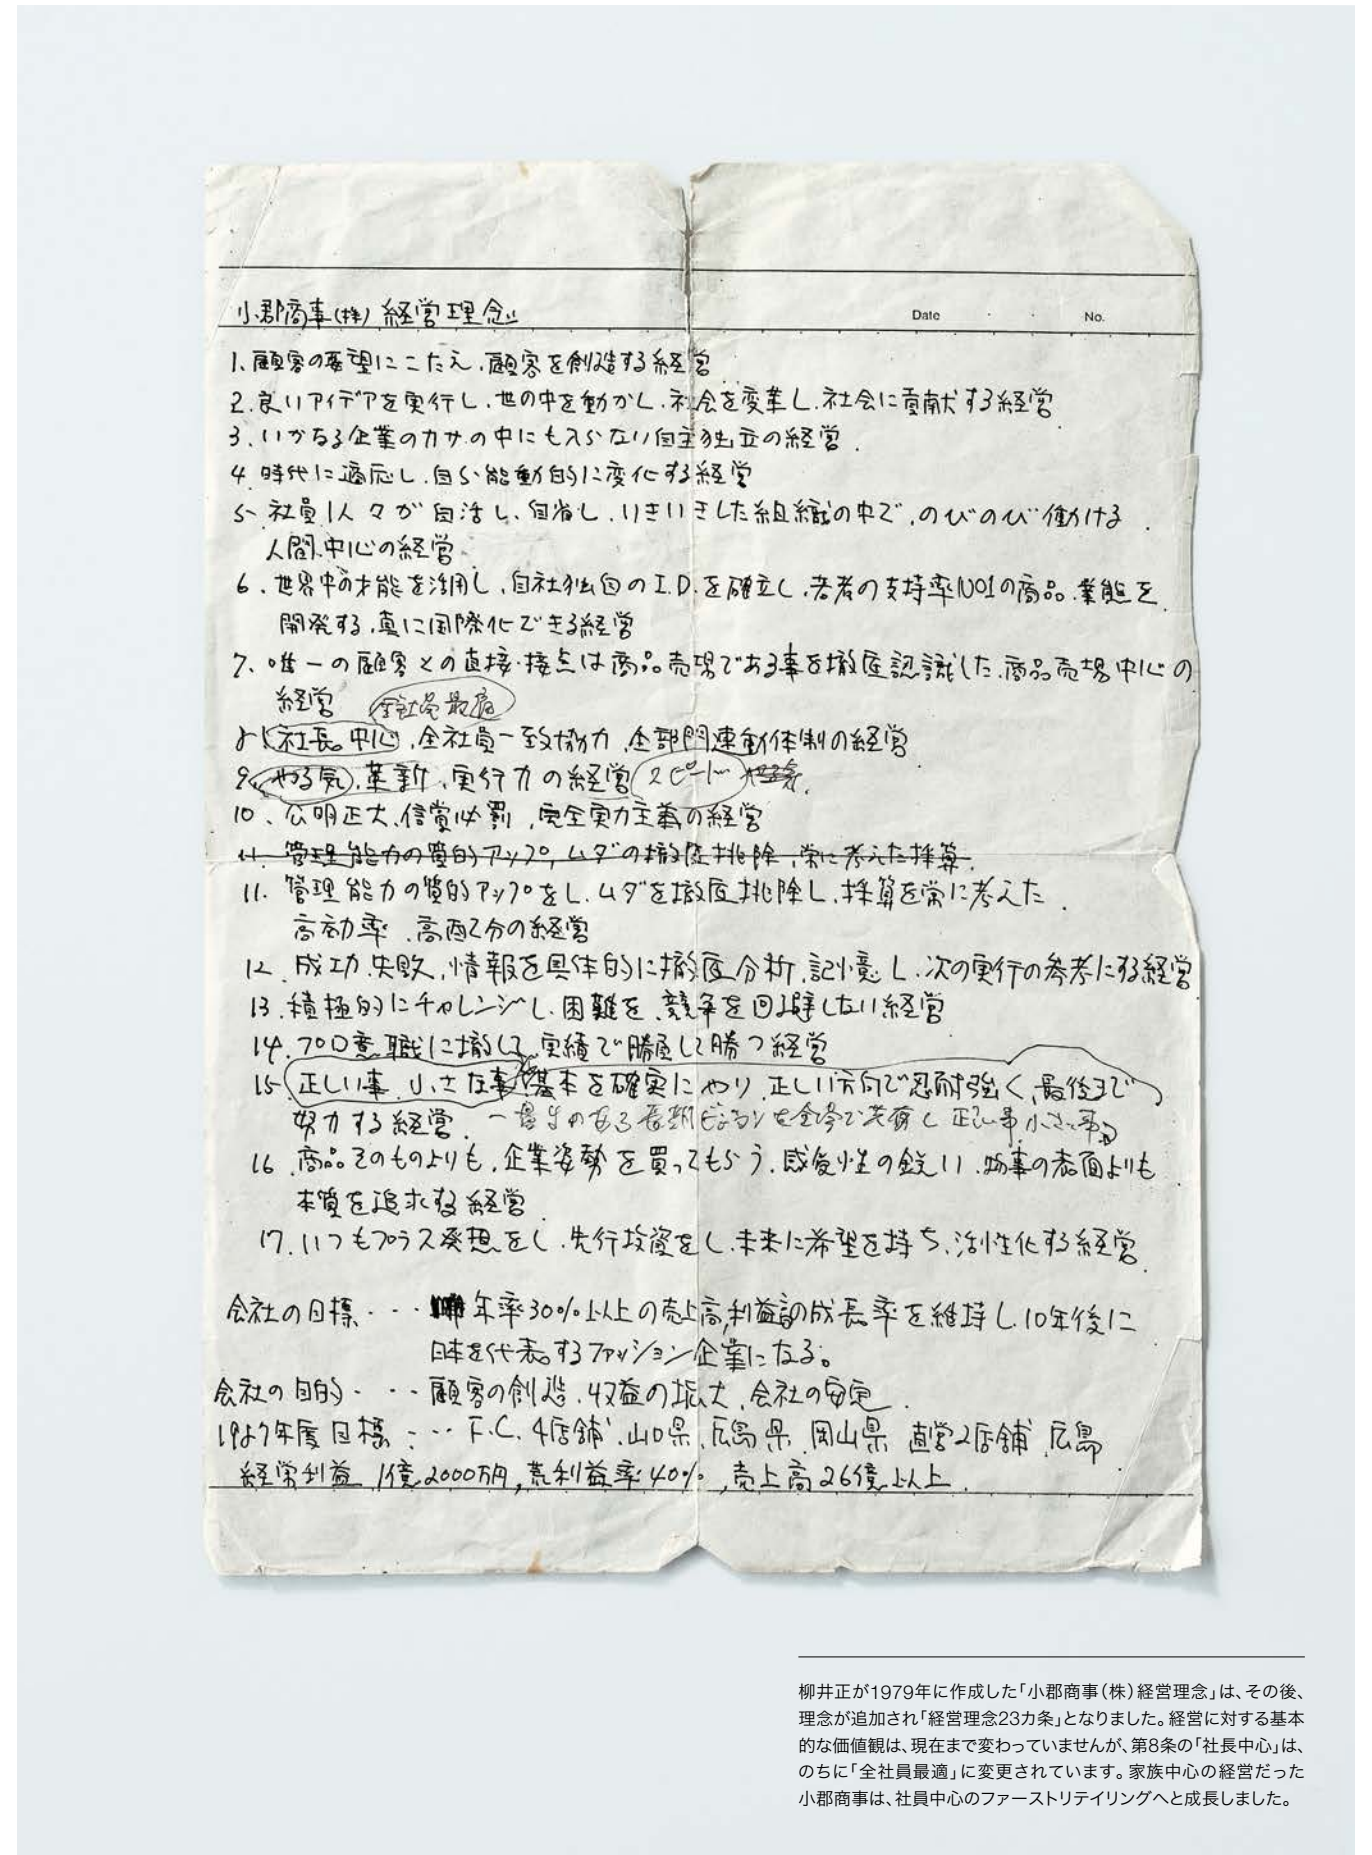 小郡商事(株) 経営理念
Date ・ ・ No.
1、顧客の要望にこたえ、顧客を創造する経営
2、良いアイデアを実行し、世の中を動かし、社会を変革し、社会に貢献する経営
3、いかなる企業のカサの中にも入らない自主独立の経営
4、時代に適応し、自ら能動的に変化する経営
5、社員1人々が自活し、自省し、いきいきした組織の中で、のびのび働ける
人間中心の経営
6、世界中の才能を活用し、自社独自のI.D.を確立し、若者の支持率NO1の商品、業態を
開発する、真に国際化できる経営
7、唯一の顧客との直接接点は商品売場である事を徹底認識した、商品売場中心の
経営 全社員最適
8、社長中心、全社員一致協力、全部門連動体制の経営
9、やる気、革新、実行力の経営 スピード
10、公明正大、信賞必罰、完全実力主義の経営
11、管理能力の質的アップ、ムダの徹底排除、常に考えた採算、
11、管理能力の質的アップをし、ムダを徹底排除し、採算を常に考えた
高効率、高配分の経営
12、成功、失敗、情報を具体的に徹底分析、記憶し、次の実行の参考にする経営
13、積極的にチャレンジし、困難を、競争を回避しない経営
14、プロ意職に徹して、実績で勝負して勝つ経営
15、正しい事、小さな事、基本を確実にやり、正しい方向で忍耐強く、最後まで
努力する経営 一貫性のある長期ビジョンを全員で共有し 正しい事 小さい事
16、商品そのものよりも、企業姿勢を買ってもらう、感受性の鋭い、物事の表面よりも
本質を追求する経営
17、いつもプラス発想をし、先行投資をし、未来に希望を持ち、活性化する経営
会社の目標・・・年率30%以上の売上高,利益高の成長率を維持し、10年後に
日本を代表するファッション企業になる。
会社の目的・・・顧客の創造、収益の拡大、会社の安定
1987年度目標・・・F.C. 4店舗、山口県、広島県、岡山県 直営2店舗 広島
経常利益 1億2000万円,荒利益率40%,売上高26億以上
柳井正が1979年に作成した「小郡商事(株)経営理念」は、その後、
理念が追加され「経営理念23カ条」となりました。経営に対する基本
的な価値観は、現在まで変わっていませんが、第8条の「社長中心」は、
のちに「全社員最適」に変更されています。家族中心の経営だった
小郡商事は、社員中心のファーストリテイリングへと成長しました。